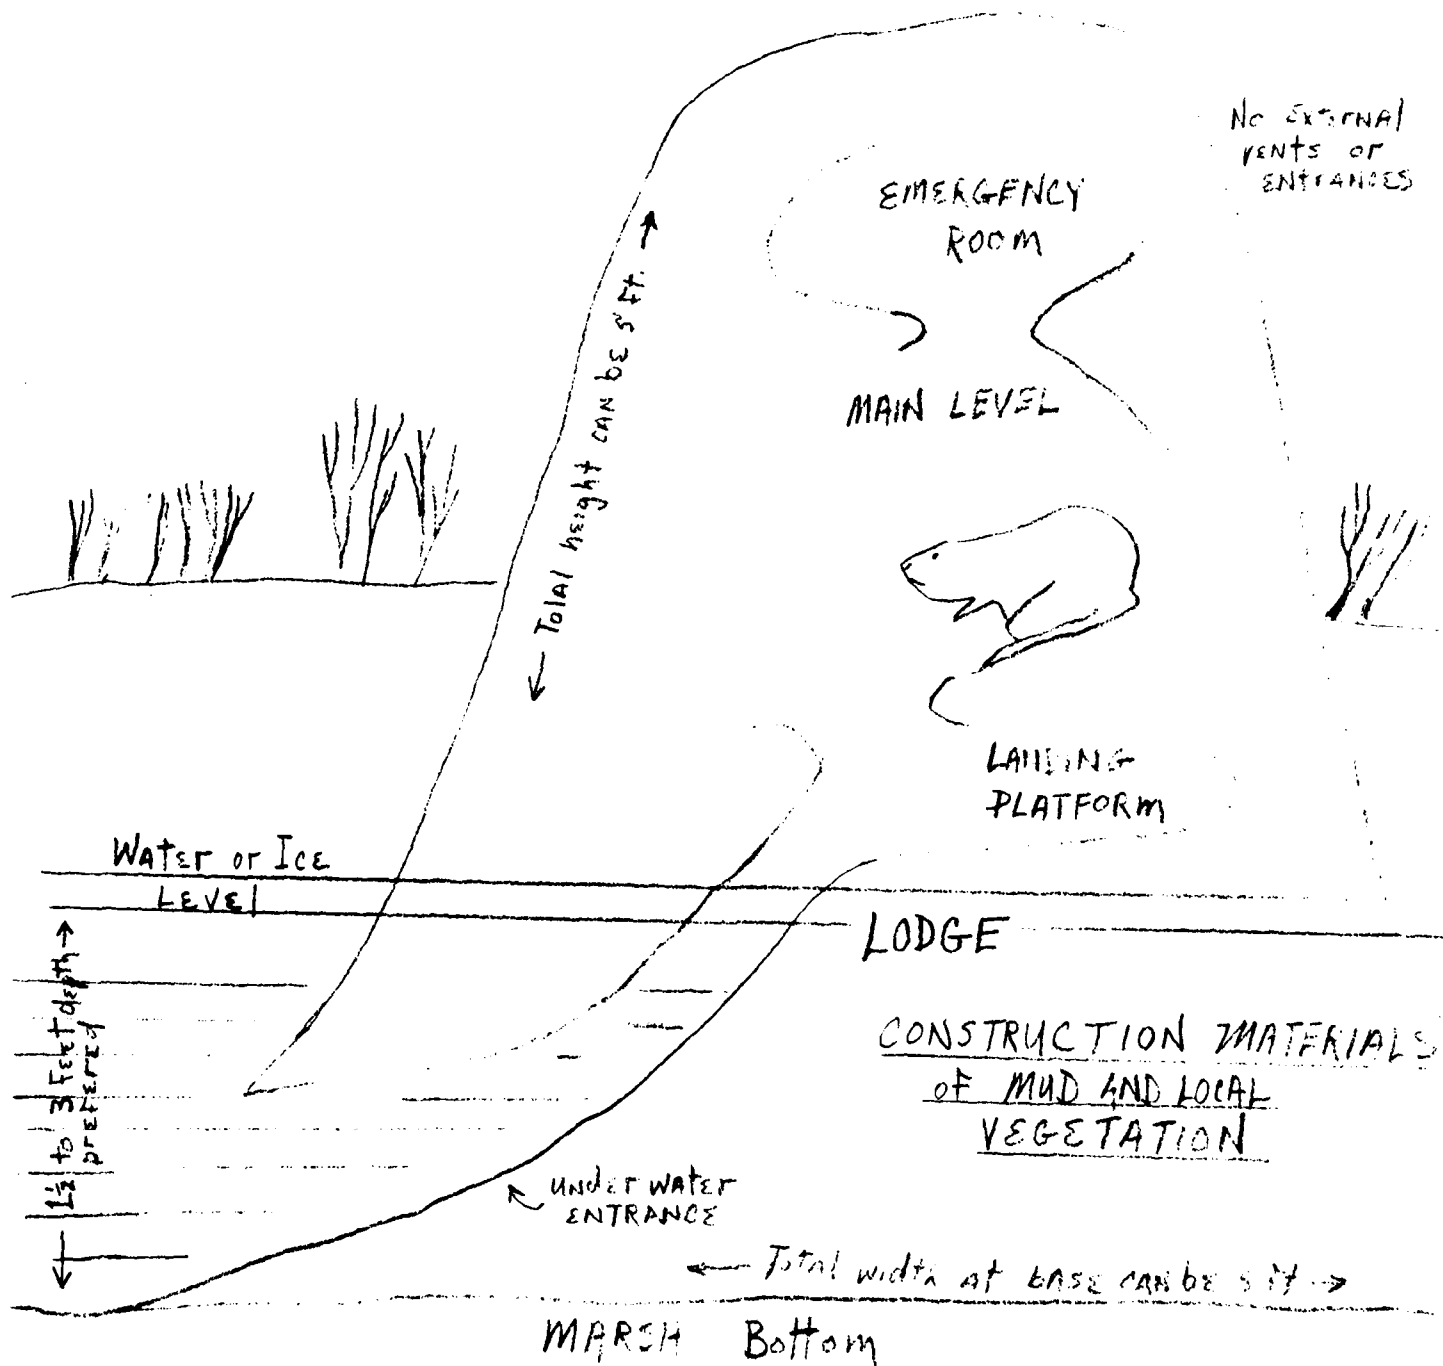 No External
vents or
ENTRANCES
EMERGENCY
ROOM
MAIN LEVEL
← Total height can be 5 ft. →
LANDING
PLATFORM
Water or Ice
LEVEL
LODGE
← 1½ to 3 Feet depth →
preferred
CONSTRUCTION MATERIALS
OF MUD AND LOCAL
VEGETATION
UNDER WATER
ENTRANCE
← Total width at base can be 5 ft →
MARSH Bottom